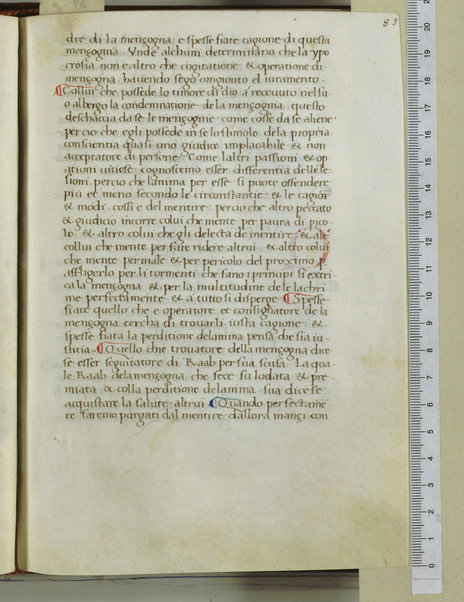 89
dre di la mençogna: e spesse fiate cagione di questa
mençogna. Vnde alchuni determinano che la ypo
crosia non e altro che cogitatione & operatione di
mençogna hauendo sego congionto el iuramento.
¶Collui che possede lo timore di dio a receuuto nel su
o albergo la condemnatione de la mençognia. questo
deschaccia da se le mençognie come cosse da se aliene
per cio che egli possede in se lo stimolo dela propria
conscientia quasi uno giudice implacabile & non
acceptatore di persone. Come laltri passioni & op
ationi uitiese cognoscemo esser differentia delle le
sioni percio che lanima per esse si puote offendere
piu et meno secondo le circonstantie & le cagion
& modi. cossi e del mentire. percio che altro peccato
& giudicio incorre colui che mente per paura di pico
lo. & altro colui che gli delecta de mentire. & alt
collui che mente per fare ridere altrui. & altro colui
che mente per male & per pericolo del proximo p
affligerlo per li tormenti che fano i principi si extri
ca la mençogna. & per la multitudine de le lachri
me perfectamente & a tutto si disperge. ¶Spesse
fiate quello che e operatore et consignatore de la
mençogna cercha di trouarli iusta cagione. &
spesse fiata la perditione delanima pensa che sia iu
stitia. ¶Quello che trouatore della mençogna dice
se esser seguitatore di Raab per sua scusa. La qua
le Raab dela mençogna che fece fu lodata & pre
miata. & colla perditione delanima sua dice se
acquistare la salute altrui. ¶Quando perfectame
te saremo purgati dal mentire. dallora mançi con